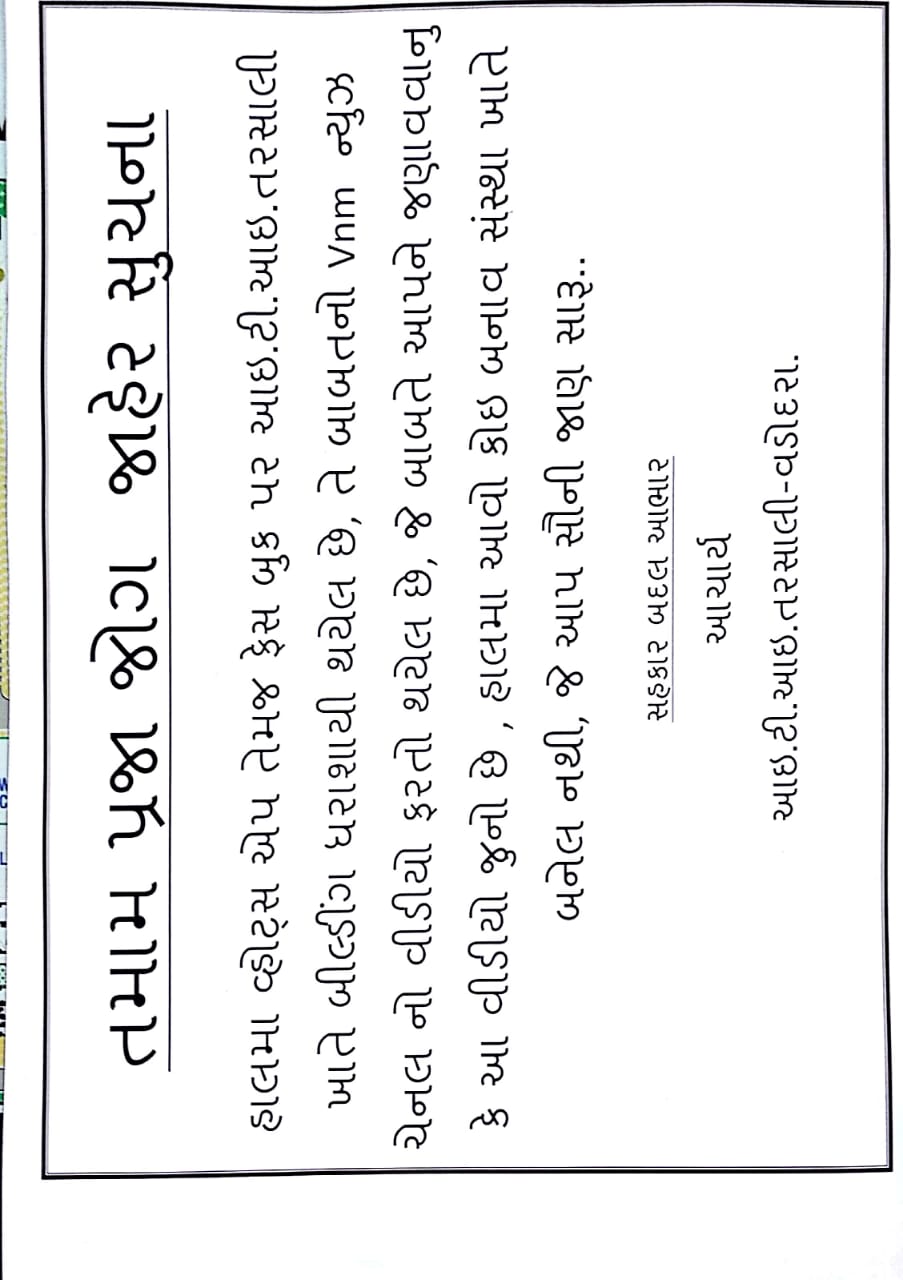 તમામ પ્રજા જોગ જાહેર સુચના
હાલમા વ્હોટ્સ એપ તેમજ ફેસ બુક પર આઇ.ટી.આઇ.તરસાલી
ખાતે બીલ્ડીંગ ધરાશાયી થયેલ છે, તે બાબતનો Vnm ન્યુઝ
ચેનલ નો વીડીયો ફરતો થયેલ છે, જે બાબતે આપને જણાવવાનુ
કે આ વીડીયો જુનો છે , હાલમા આવો કોઇ બનાવ સંસ્થા ખાતે
બનેલ નથી, જે આપ સૌની જાણ સારૂ..
સહકાર બદલ આભાર
આચાર્ય
આઇ.ટી.આઇ.તરસાલી-વડોદરા.